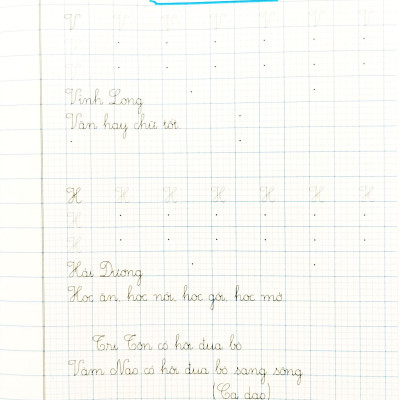 V V V V V V V
Vĩnh Long
Văn hay chữ tốt
H H H H H H H
H
H
Hải Dương
Học ăn, học nói, học gói, học mở.
Tri Tôn có hội đua bò
Vàm Nao có hội đua bò sang sông
(Ca dao)